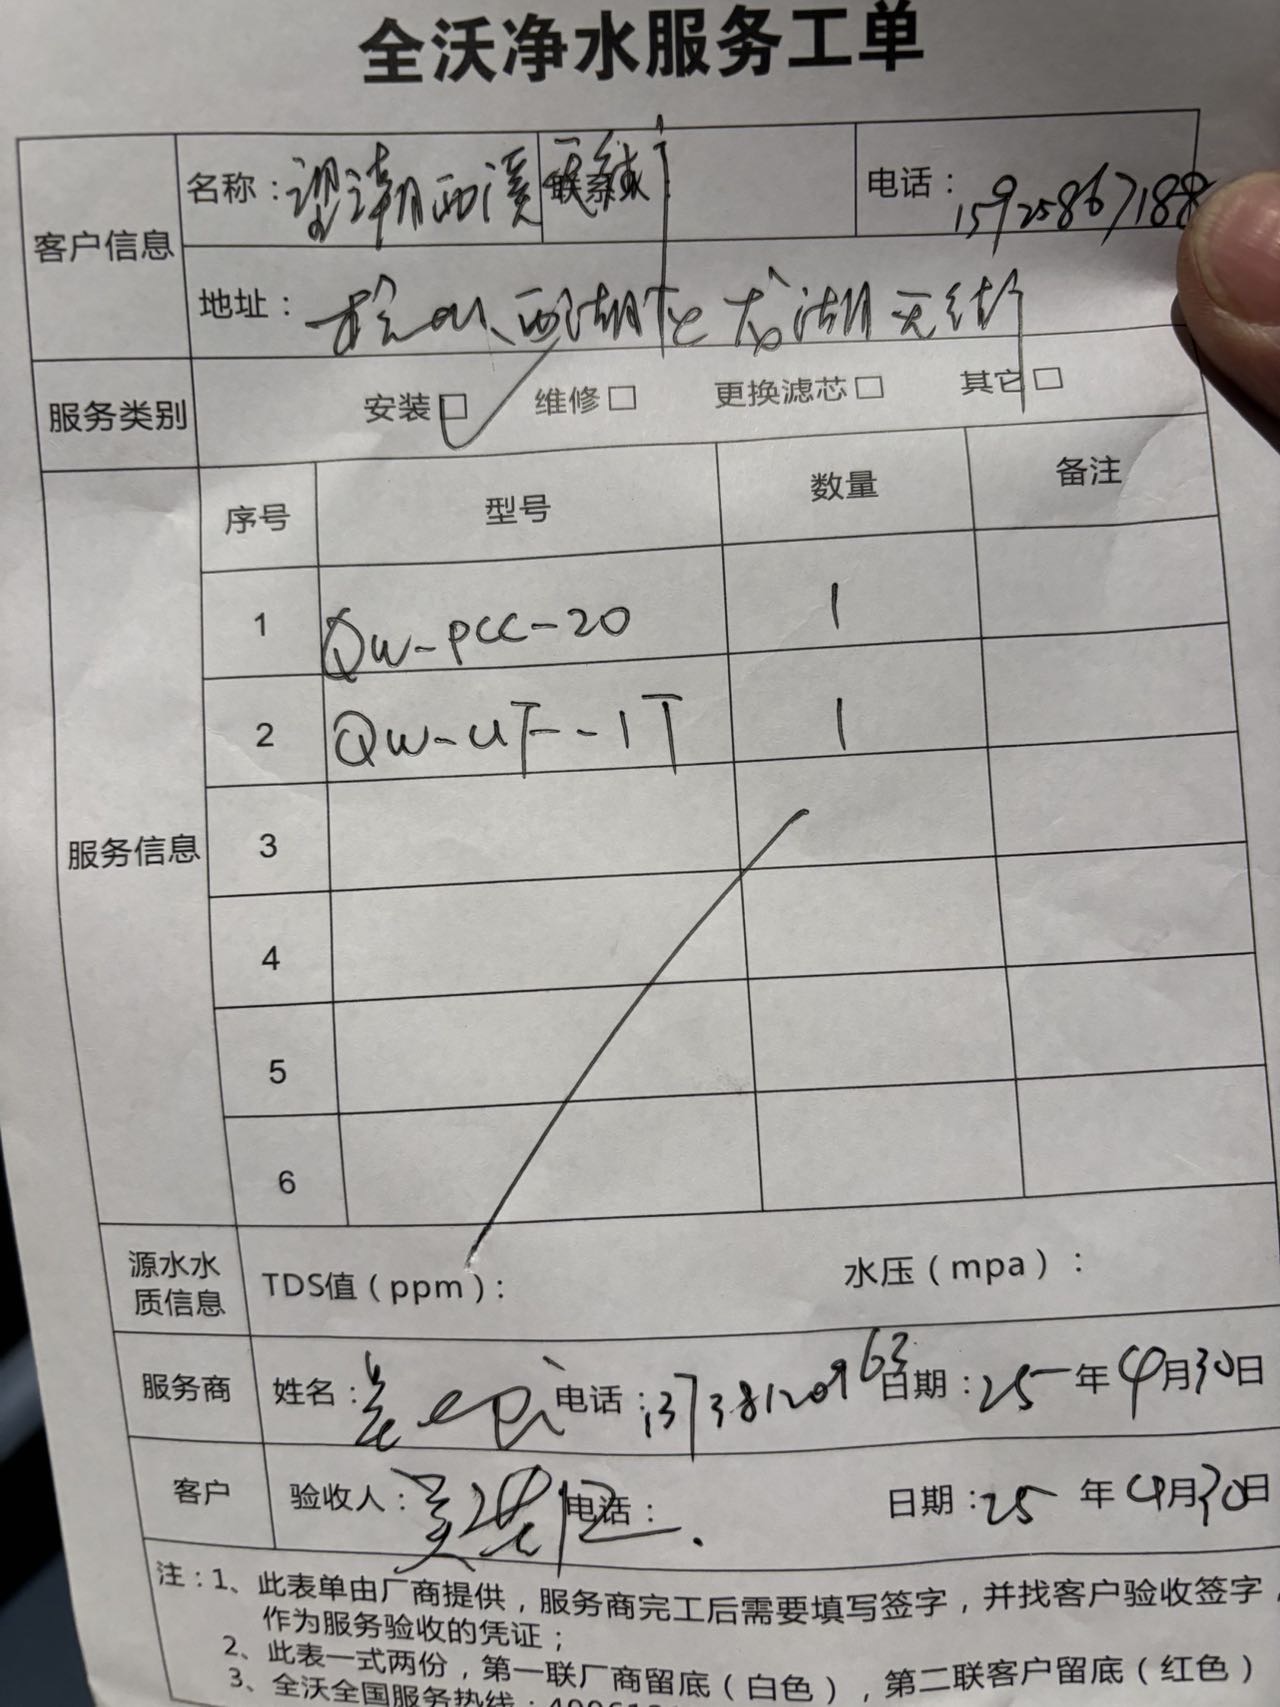 全沃净水服务工单
客户信息 名称：望潮西溪天街 联系人： 电话：15925867188
地址：杭州 西湖区 龙湖天街
服务类别 安装☑ 维修□ 更换滤芯□ 其它□
服务信息 序号 型号 数量 备注
1 QW-PCC-20 1
2 QW-UF-1T 1
3
4
5
6
源水水质信息 TDS值（ppm）： 水压（mpa）：
服务商 姓名： 电话：13738120963 日期：25年4月30日
客户 验收人： 电话： 日期：25年4月30日
注：1、此表单由厂商提供，服务商完工后需要填写签字，并找客户验收签字，
作为服务验收的凭证；
2、此表一式两份，第一联厂商留底（白色），第二联客户留底（红色）
3、全沃全国服务热线：